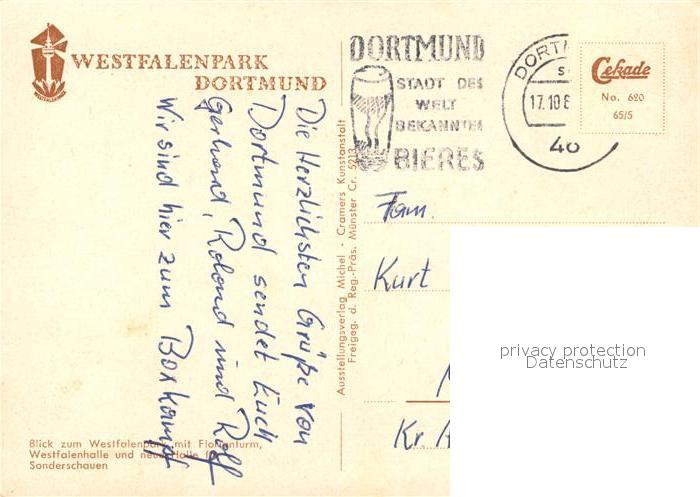 WESTFALENPARK
DORTMUND
DORTMUND
STADT DES
WELT
BEKANNTEN
BIERES
17.10.6
46
Cekade
No. 620
65/5
Die Herzlichsten Grüße von
Dortmund sendet Euch
Gerhard, Roland und Rolf
Wir sind hier zum Boxkampf
Ausstellungsverlag Michel - Cramers Kunstanstalt
Freigeg. d. Reg.-Präs. Münster Cr. 5213
Fam.
Kurt
Kr.
privacy protection
Datenschutz
Blick zum Westfalenpark mit Florianturm,
Westfalenhalle und neue Halle für
Sonderschauen